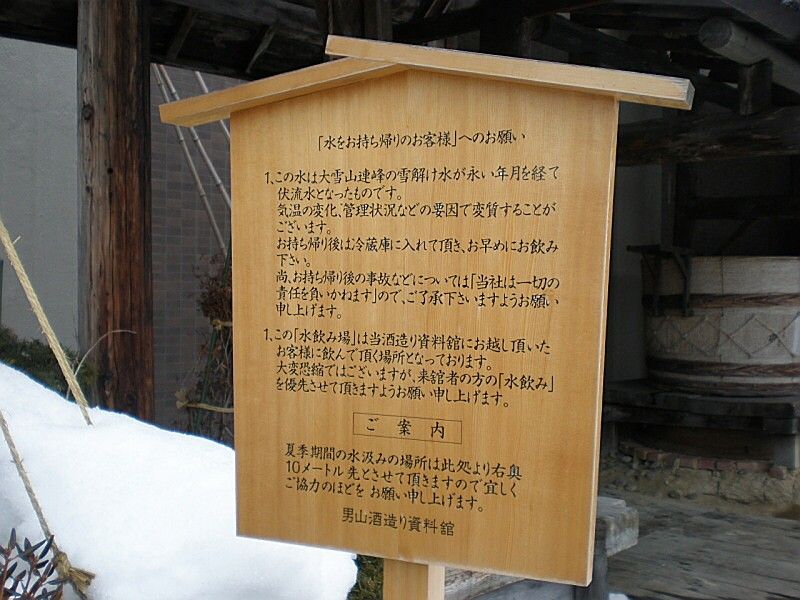 「水をお持ち帰りのお客様」へのお願い
1、この水は大雪山連峰の雪解け水が永い年月を経て
伏流水となったものです。
気温の変化、管理状況などの要因で変質することが
ございます。
お持ち帰り後は冷蔵庫に入れて頂き、お早めにお飲み
下さい。
尚、お持ち帰り後の事故などについては「当社は一切の
責任を負いかねます」ので、ご了承下さいますようお願い
申し上げます。
1、この「水飲み場」は当酒造り資料舘にお越し頂いた
お客様に飲んで頂く場所となっております。
大変恐縮ではございますが、来舘者の方の「水飲み」
を優先させて頂きますようお願い申し上げます。
ご案内
夏季期間の水汲みの場所は此処より右奥
10メートル先とさせて頂きますので宜しく
ご協力のほどを お願い申し上げます。
男山酒造り資料舘